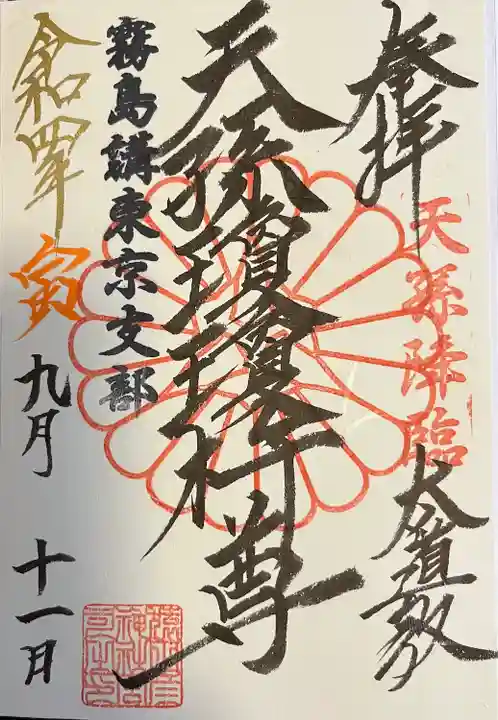 奉拝
天孫降臨
大道教
天孫瓊瓊杵尊
霧島講東京支部
令和四年 寅 九月 十一日